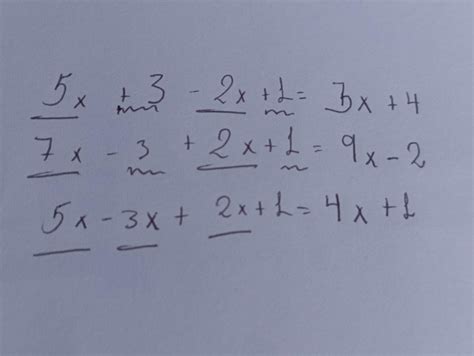 5x + 3 - 2x + 1 = 3x + 4
7x - 3 + 2x + 1 = 9x - 2
5x - 3x + 2x + 1 = 4x + 1